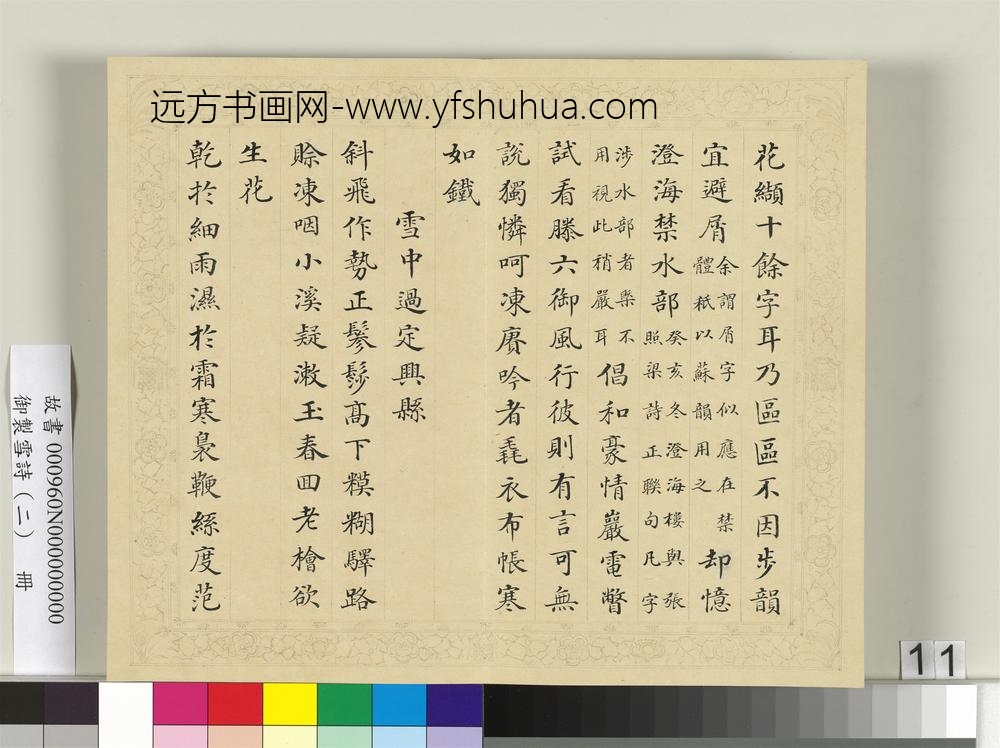 远方书画网-www.yfshuhua.com
花纈十餘字耳乃區區不因步韻
宜避屑余謂屑字似應在禁體秖以蘇韻用之却憶
澄海禁水部癸亥冬澄海樓與張照梁詩正聯句凡字
涉水部者槩不用視此稍嚴耳倡和豪情巖電瞥
試看滕六御風行彼則有言可無
說獨憐呵凍賡吟者毳衣布帳寒
如鐵
雪中過定興縣
斜飛作勢正鬖髿高下糢糊驛路
賖凍咽小溪疑漱玉春回老檜欲
生花
乾於細雨濕於霜寒裊鞭絲度范
故書 000960N000000000
御製雪詩(二) 冊
11